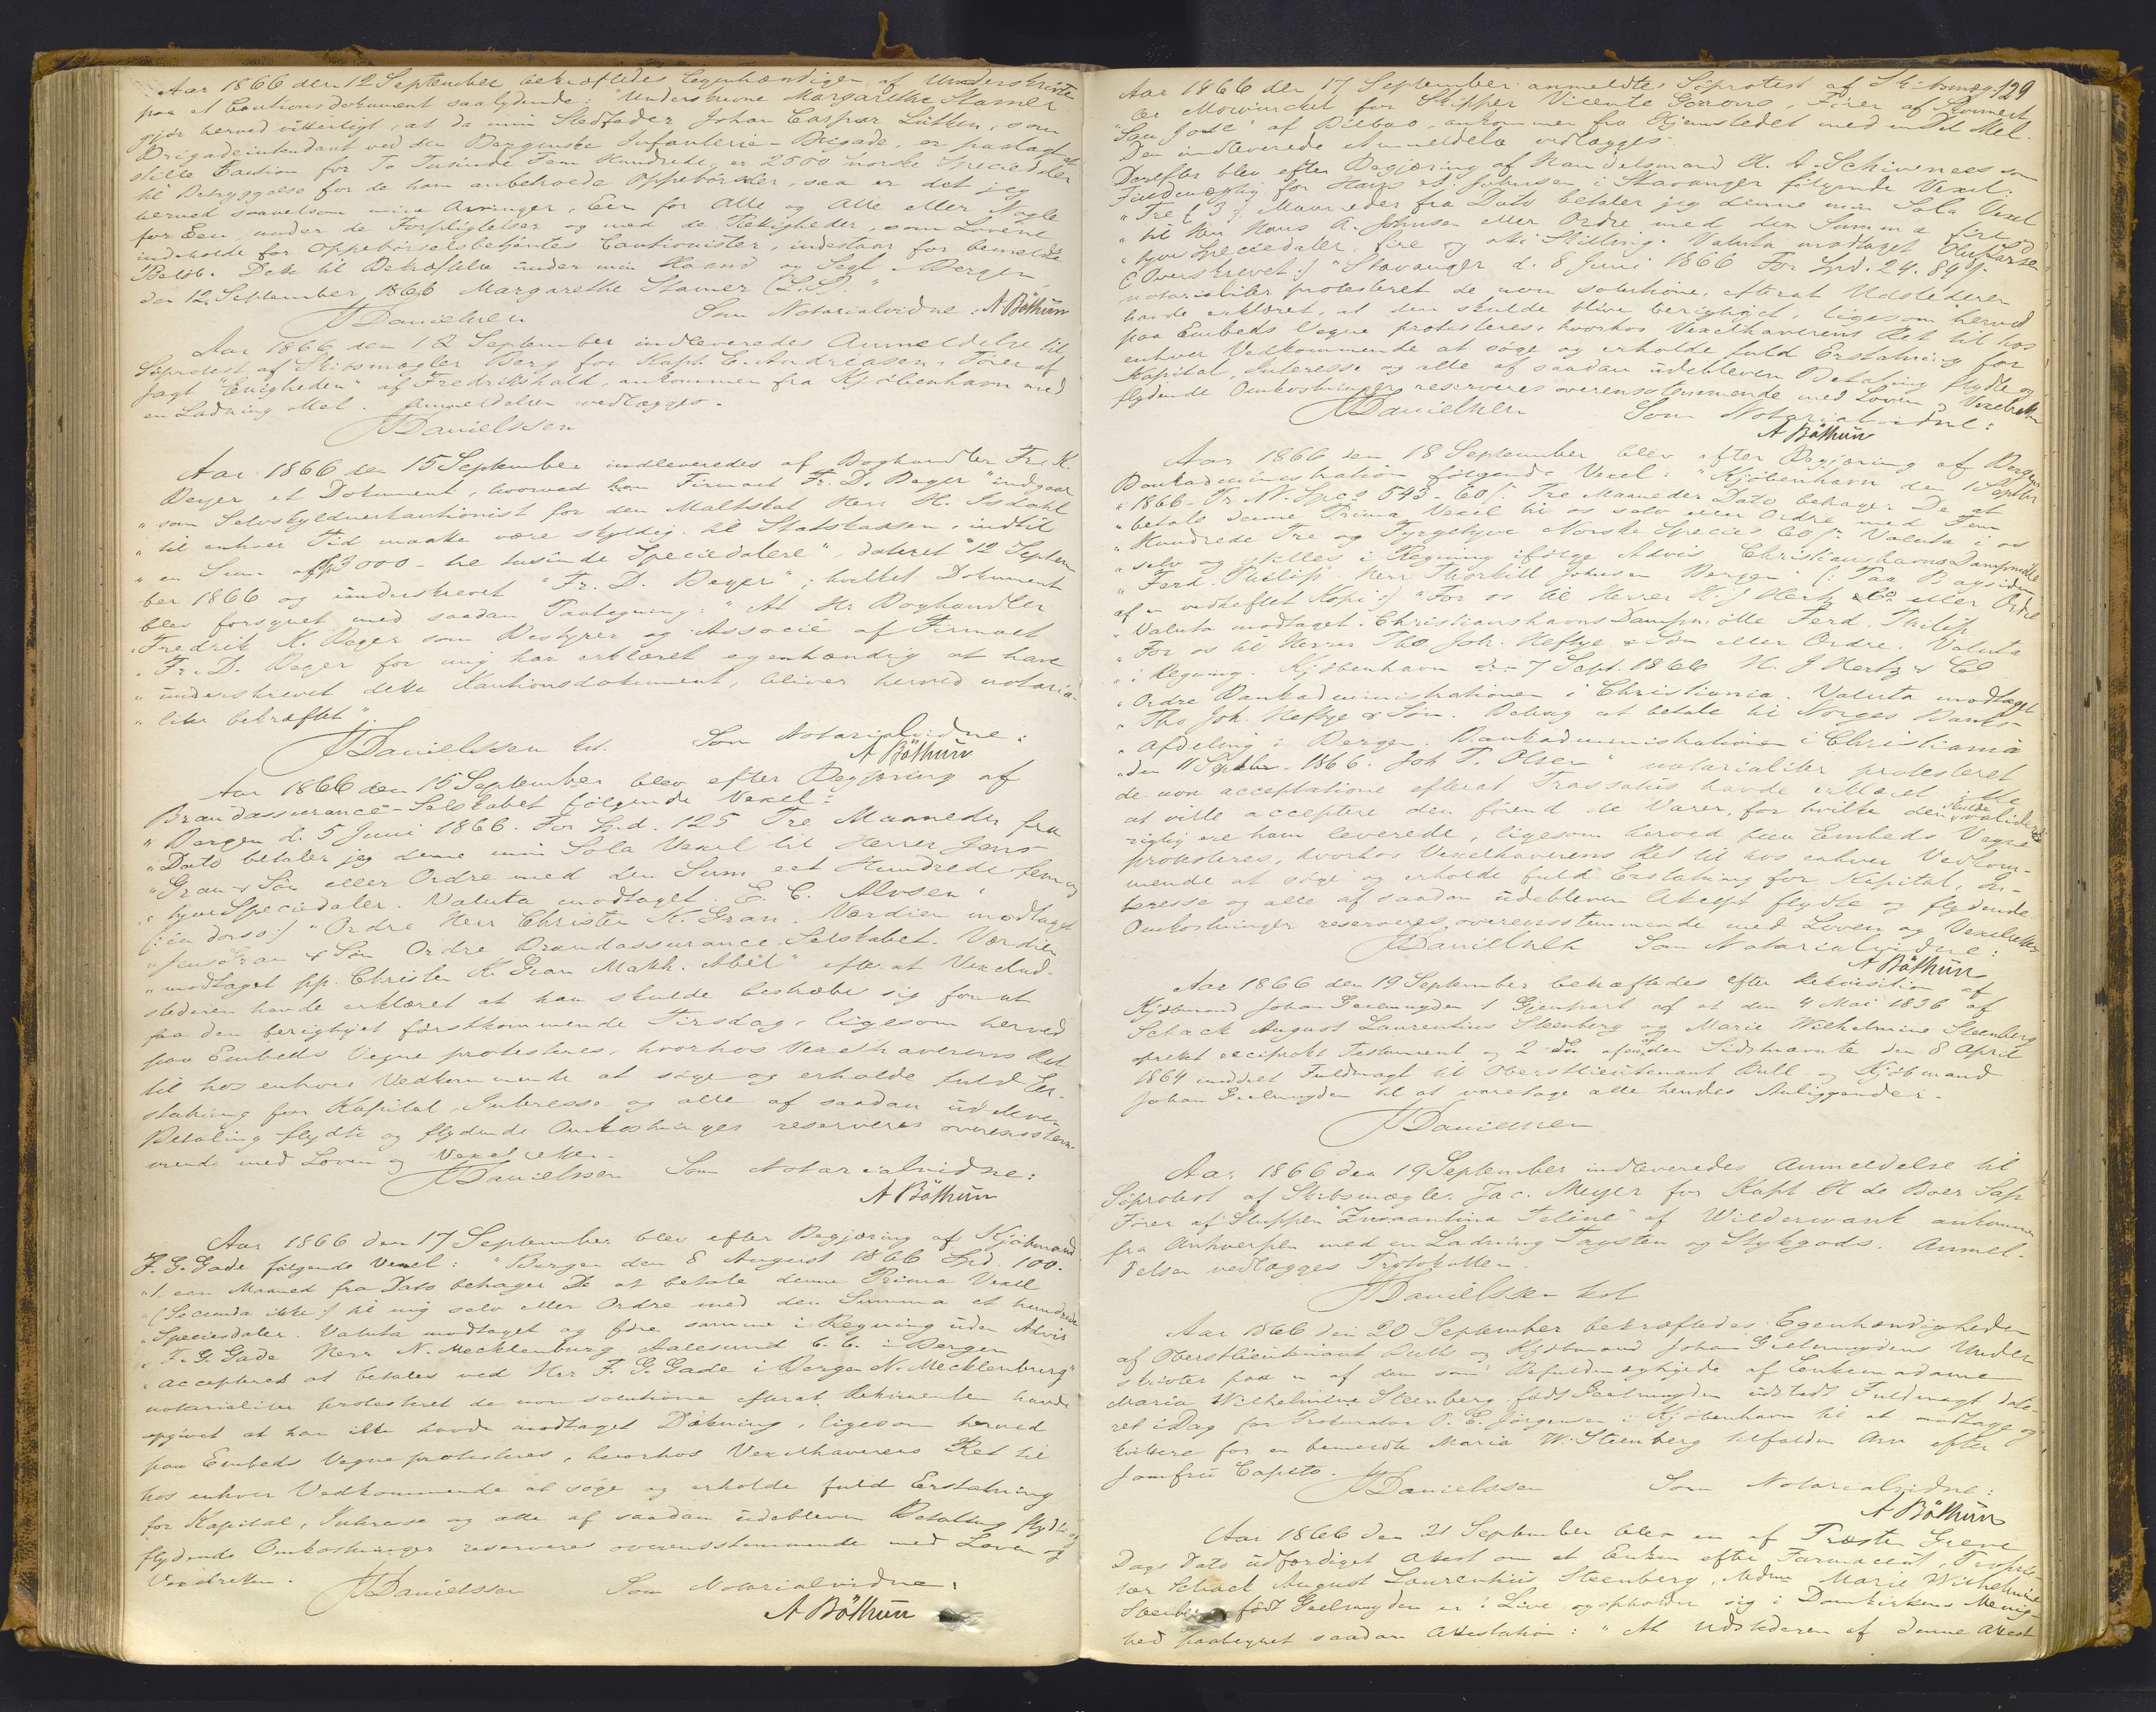 Aar 1866 den 12 September bekræftedes Egenhændigen af Underskrivte
paa et Cautionsdokument saalydende: "Underskrevne Margarethe Stamer
gjör herved vitterligt, at da min Stedfader Johan Caspar Lütken, som
Brigadeintendant ved den Bergenske Infanterie-Brigade, er paalagt at
stille Caution for To Tusinde Fem Hundrede, er 2500 norske Speciedaler
til Betryggelse for de ham anbetroede Oppebörsler, saa er det jeg
herved saavelsom mine Arvinger, Een for Alle og Alle eller Nogle
for Een, under de Forpligtelser og med de Rettigheder, som Lovene
indeholde for Oppebörselsbetjentes Cautionister, indestaar for bemeldte
Belöb. Dette til Bekræftelse under min Haand og Segl. Bergen
den 12 September 1866 Margarethe Stamer (L.S.)"
JJDanielssen Som Notarialvidne: A Böthun
Aar 1866 den 12 September indleveredes Anmeldelse til
Söprotest af Skibsmægler Berg for Kapt. C. Andreasen, Förer af
Jagt "Enigheden" af Fredrikshald, ankommen fra Kjöbenhavn med
en Ladning Mel. Anmeldelsen vedlægges.
JJDanielssen
Aar 1866 den 15 September indleveredes af Boghandler Fr. K.
Beyer et Dokument, hvorved Firmaet Fr. D. Beyer "indgaar
"som Selvskyldnerkautionist for den Maltskat Herr H. Isdahl
"til enhver Tid maatte være skyldig til Statskassen, indtil
"en Sum af 3000 - tre tusinde Speciedalere", dateret 12 Septem
ber 1866 og underskrevet "Fr. D. Beyer"; hvilket Dokument
blev forsynet med saadan Paategning: "At Hr Boghandler
"Fredrik K. Beyer som Bestyrer og Associé af Firmaet
"Fr. D. Beyer for mig har erklæret egenhændig at have
"underskrevet dette Kautionsdokument, bliver herved notaria-
"liter bekræftet".
JJDanielssen kst. Som Notarialvidne:
A Böthun
Aar 1866 den 15 September blev efter Begjæring af
Brandassurance-Selskabet følgende Vexel:
"Bergen d. 5 Juni 1866. For Spd. 125 Tre Maaneder fra
"Dato betaler jeg denne min Sola Vexel til Herrer Jens
"Gran & Sön eller Ordre med den Sum eet Hundrede fem og
"tyve Speciedaler. Valuta modtaget E. C. Alvsen"
(: in dorso :) "Ordre Herr Christen K. Gran. Værdien modtaget
"Jens Gran & Sön Ordre Brandassurance Selskabet. Værdien
"modtaget pp. Christen K. Gran Math. Abel" efter at Vexelud-
stederen havde erklæret at han skulde bestræbe sig for at
faa den berigtiget førstkommende Tirsdag, ligesom herved
paa Embeds Vegne protesteres, hvorhos Vexelhaverens Ret
til hos enhver Vedkommende at søge og erholde fuld Er-
statning for Kapital, Interesse og alle af saadan udebleven
Betaling flydte og flydende Omkostninger reserveres overensstem-
mende med Loven og Vexelretten.
JJDanielssen Som Notarialvidne:
A Böthun
Aar 1866 den 17 September blev efter Begjæring af Kjöbmand
F. G. Gade følgende Vexel: "Bergen den 8 August 1866 Spd. 100.
"1, een Maaned fra Dato behager De at betale denne Prima Vexel
"(Secunda ikke:) til mig selv eller Ordre med den Summa et hundrede
"Speciesdaler. Valuta modtaget og före samme i Regning uden Advis
"F. G. Gade Herr N. Mecklenburg Aalesund C. C. i Bergen
"accepteret at betales ved Herr F. G. Gade i Bergen N. Mecklenburg"
notarialiter protesteret de non solutione efterat Rekvirenten havde
opgivet at han ikke havde modtaget Dækning, ligesom herved
paa Embeds Vegne protesteres, hvorhos Vexelhaverens Ret til
hos enhver Vedkommende at søge og erholde fuld Erstatning
for Kapital, Interesse og alle af saadan udebleven Betaling flydte og
flydende Omkostninger reserveres overensstemmende med Loven og
Vexelretten. JJDanielssen Som Notarialvidne:
A Böthun
129
Aar 1866 den 17 September anmeldtes Söprotest af Skibsmæg-
ler Mowinckel for Skipper Vicente , Förer af Skonnert
"San José" af Bilbao, ankommen fra Hjemstedet med en Del Mel.
Den indleverede Anmeldelse vedlægges.
Derefter blev efter Begjæring af Handelsmand H. A. Schiveness som
Fuldmægtig for Hans A. Johnsen i Stavanger følgende Vexel:
"Tre (3) Maaneder fra Dato betaler jeg denne min Sola Vexel
"til Herr Hans A. Johnsen eller Ordre med den Summa fire og
"tyve Speciedaler fire og otti Skilling. Valuta modtaget Oluf Larsen
(: Overskrevet:) "Stavanger d. 8 Juni 1866 For Spd. 24. 84 ß"
notarialiter protesteret de non solutione, efterat Udstederen
havde erklæret, at den skulde blive berigtiget, ligesom herved
paa Embeds Vegne protesteres, hvorhos Vexelhaverens Ret til hos
enhver Vedkommende at söge og erholde fuld Erstatning for
Kapital, Interesse og alle af saadan udebleven Betaling flydte og
flydende Omkostninger reserveres overensstemmende med Loven og Vexelretten
JJDanielssen Som Notarialvidne:
A Böthun
Aar 1866 den 18 September blev efter Begjæring af Bergens
Bankadministration følgende Vexel: "Kjöbenhavn den 1 Septbr
"1866. Pr. N. Spcs 543 - 60 ß. Tre Maaneder Dato behager De at
"betale denne Prima Vexel til os selv eller Ordre med Fem
"Hundrede Tre og Fyrgetyve Norske Species 60 ß. Valuta i os
"selv og stilles i Regning ifölge Advis Christianshavns Dampmölle
"Ferd. Philip Herr Thorkill Johnsen Bergen" (: Paa Bagsiden
af en vedheftet Kopi:) "For os til Herrer H. J. Hertz & Co eller Ordre
"Valuta modtaget. Christianshavns Dampmölle Ferd. Philip
"For os til Herrer Tho. Joh. Heftye & Sön eller Ordre. Valuta
"i Regning. Kjöbenhavn den 7 Sept. 1866 H. J. Hertz & Co
"Ordre Bankadministrationen i Christiania. Valuta modtaget
"Tho. Joh. Heftye & Sön. Behag at betale til Norges Banks
"Afdeling i Bergen. Bankadministrationen i Christiania
"den 11 Septbr. 1866. Joh T. Olsen" notarialiter protesteret
de non acceptatione efterat Trassatus havde erklæret ikke
at ville acceptere den förend de Varer, for hvilke den skulde validere
rigtig ere ham leverede, ligesom herved paa Embeds Vegne
protesteres, hvorhos Vexelhaverens Ret til hos enhver Vedkom-
mende at söge og erholde fuld Erstatning for Kapital, In-
teresse og alle af saadan udebleven Accept flydte og flydende
Omkostninger reserveres overensstemmende med Loven og Vexelretten
JJDanielssen Som Notarialvidne:
A Böthun
Aar 1866 den 19 September bekræftedes efter Rekvisition af
Kjöbmand Johan Geelmuyden 1 Gjenpart af et den 4 Mai 1836 af
Schack August Laurentius Steenberg og Marie Wilhelmine Steenberg
oprettet reciprokt Testament og 2 Do af en af den Sidstnævnte den 8 April
1864 meddelt Fuldmagt til Oberstlieutenant Bull og Kjöbmand
Johan Geelmuyden til at varetage alle hendes Anliggender.
JJDanielssen
Aar 1866 den 19 September indleveredes Anmeldelse til
Söprotest af Skibsmægler Jac. Meyer for Kapt H de Boer Sap
Förer af Sluppen " Teline" af Wilderwank ankommen
fra Antwerpen med en Ladning Tagsten og Stykgods. Anmel-
delsen vedlægges Protokollen.
JJDanielssen kst
Aar 1866 den 20 September bekræftedes Egenhændigheden
af Oberstlieutenant Bulls og Kjöbmand Johan Geelmuydens Under
skrivter paa en af dem som Befuldmægtigede af Enkemadame
Maria Wilhelmine Steenberg födt Geelmuyden udstedt Fuldmagt date-
ret i Dag for Prokurator P. E. Jörgensen i Kjöbenhavn til at modtage og
kvittere for en bemeldte Maria W. Steenberg tilfalden Arv efter
Jomfru Capito. JJDanielssen Som Notarialvidne:
A Böthun
Aar 1866 den 21 September blev en af Præsten Greve
Dags Dato udfærdiget Attest om at Enken efter Farmaceut, Proprie-
tær Schack August Laurentius Steenberg, Mdme Marie Wilhelmine
Steenberg födt Geelmuyden er i Live og opholder sig i Domkirkens Menig-
hed paategnet saadan Attestation: "At Udstederen af denne Attest